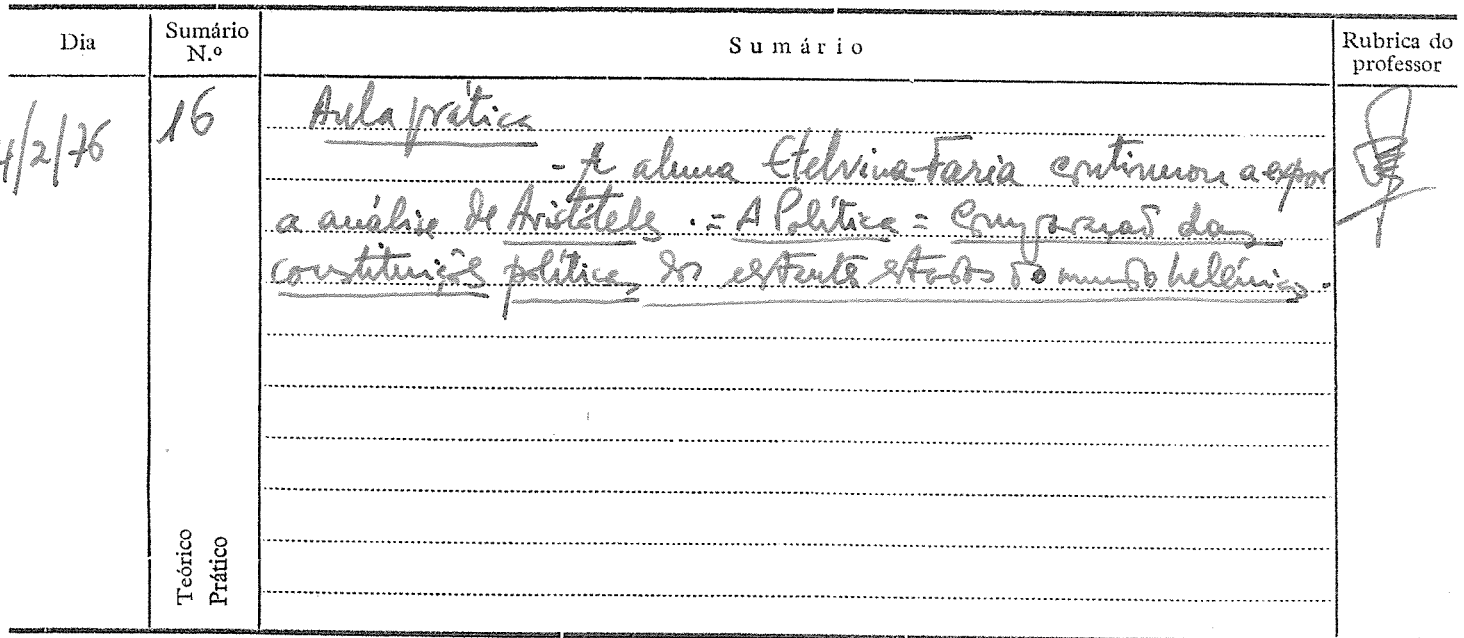 Dia Sumário N.º Sumário Rubrica do professor
4/2/76 16 Aula prática
- A aluna Etelvina Faria continuou a expor
a análise de Aristóteles := A Política = Comparação das
constituições políticas dos estados do mundo helénico.
Teórico
Prático